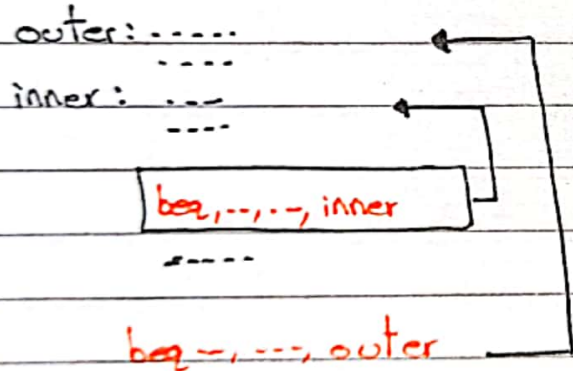 outer: .....
....
inner: .---
----
beq,--,--, inner
-----
beq -, ---, outer